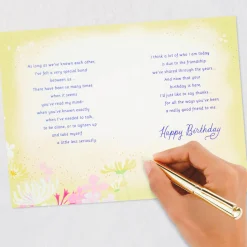 As long as we've known each other,
I've felt a very special bond
between us...
There have been so many times
when it seems
you've read my mind—
when you've known exactly
when I've needed to talk,
to be alone, or to lighten up
and take myself
a little less seriously.
I think a lot of who I am today
is due to the friendship
we've shared through the years...
And now that your
birthday is here,
I'd just like to say thanks
for all the ways you've been
a really good friend to me.
Happy Birthday